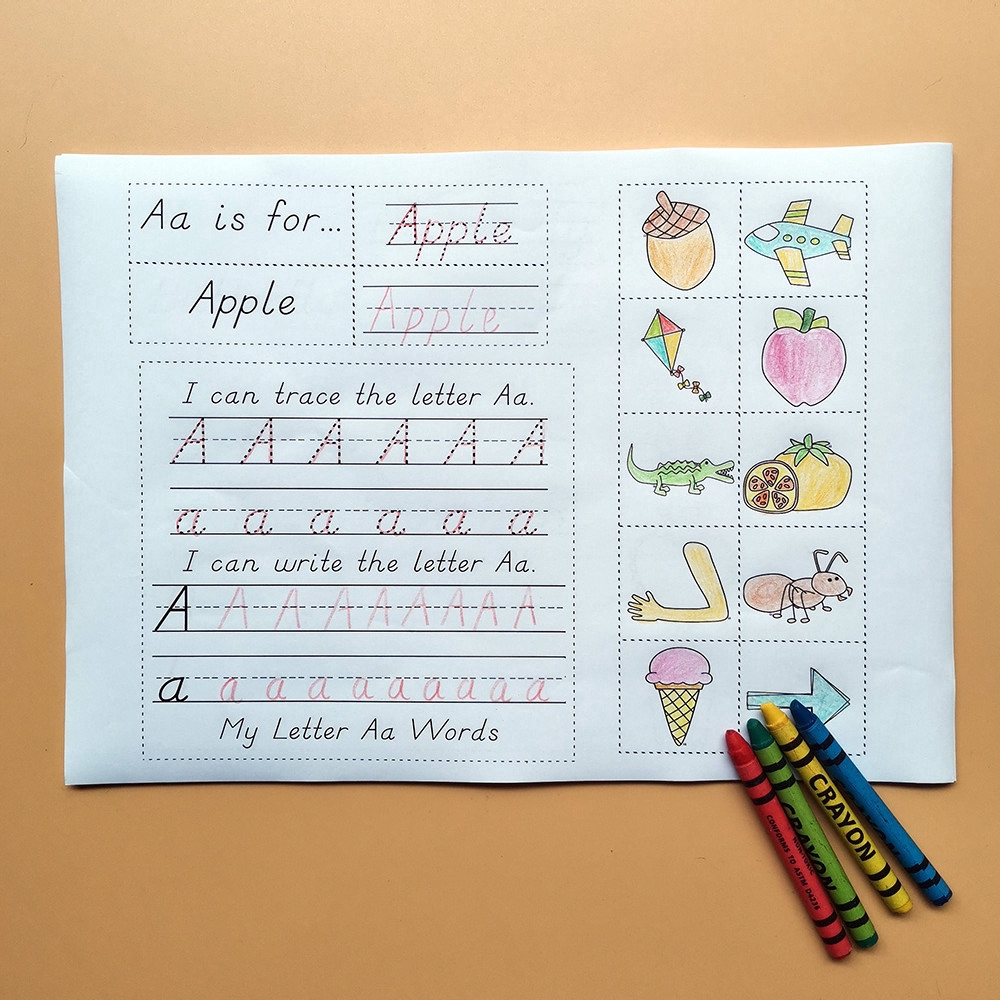 Aa is for...
Apple
Apple
Apple
I can trace the letter Aa.
A A A A A A
a a a a a a
I can write the letter Aa.
A A A A A A A A A
a a a a a a a a a
My Letter Aa Words
CRAYON
CONFORMS TO ASTM D4236
CRAYON
NON-TOXIC
CRAYON